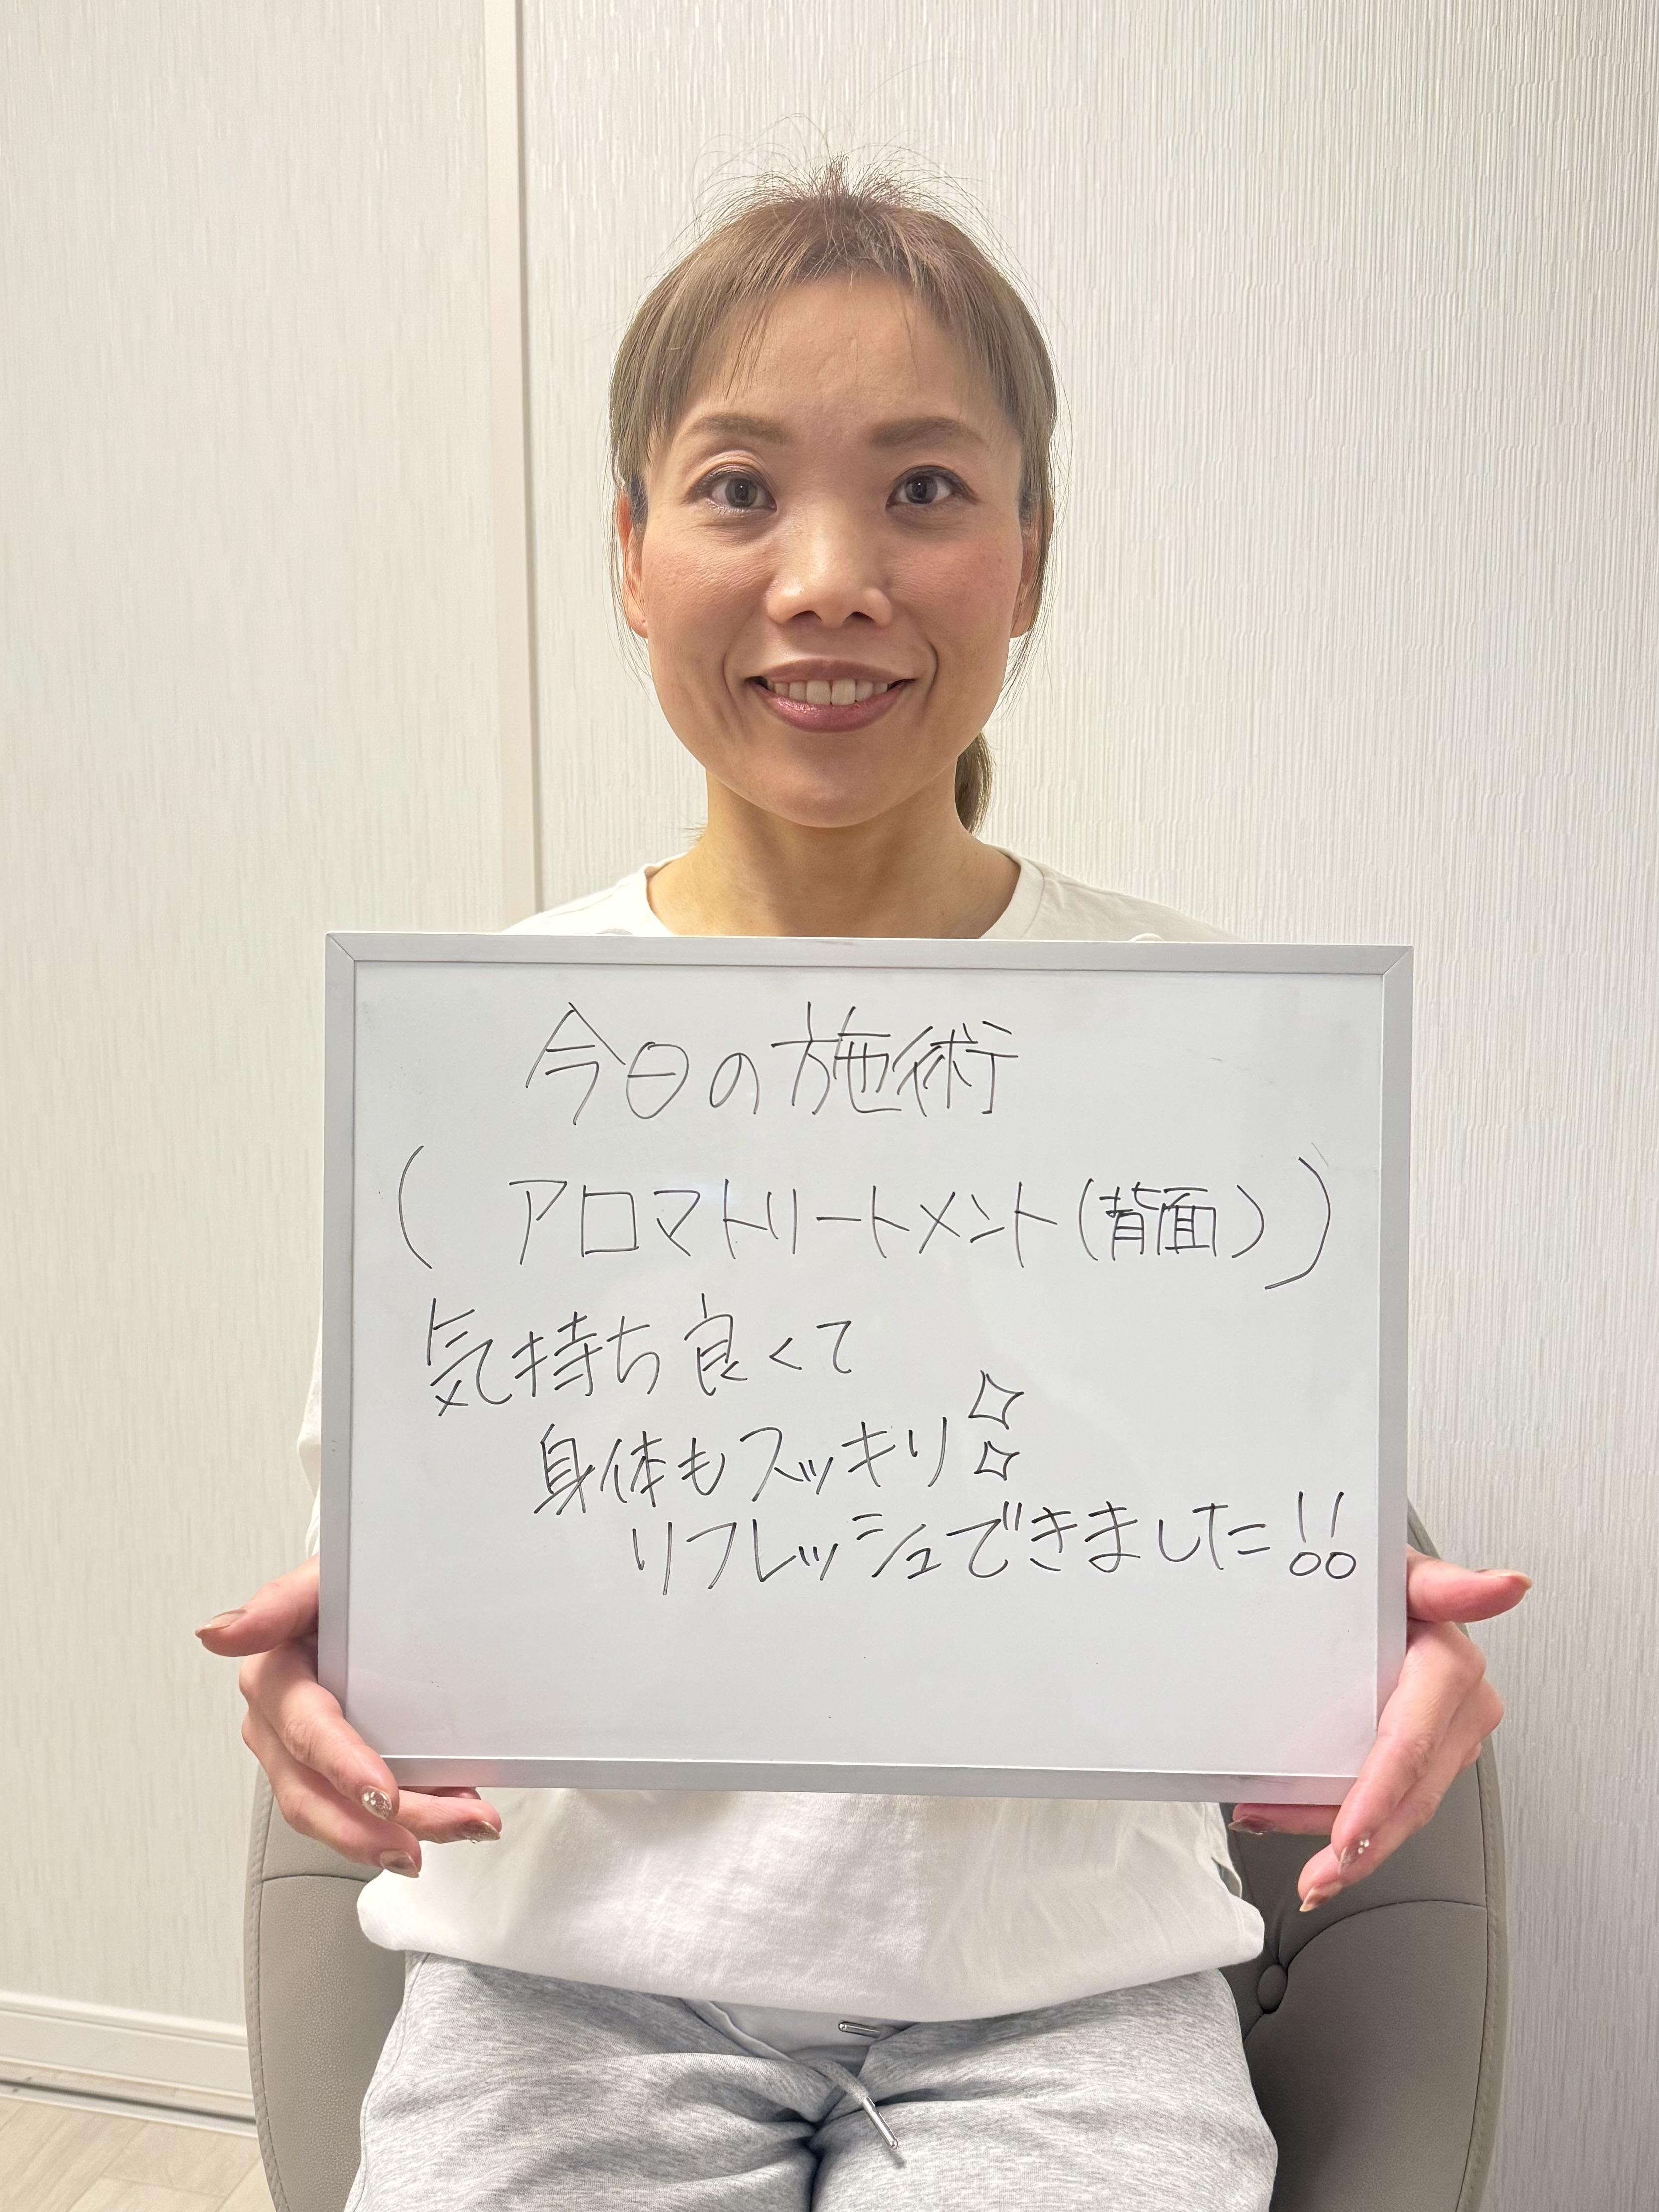 今日の施術
(アロマトリートメント(背面))
気持ち良くて
身体もスッキリ
リフレッシュできました!!